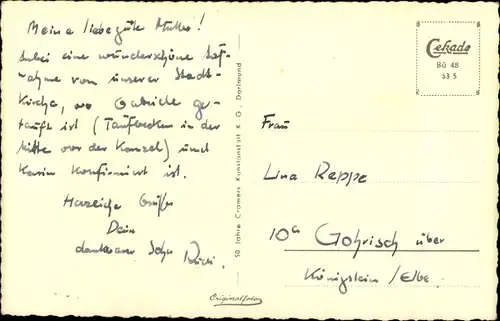 Meine liebe gute Mutter!
Anbei eine wunderschöne Auf-
nahme von unserer Stadt-
Kirche, wo Gabriele ge-
tauft ist (Taufbecken in der
Mitte vor der Kanzel) und
Karin konfirmiert ist.
Herzliche Grüße
Dein
dankbarer Sohn Rudi.
50 Jahre Cramers Kunstanstalt K.G., Dortmund
Originalfoto
Cekade
Bü 48
53 5
Frau
Lina Reppe
10a Gohrisch über
Königstein/Elbe.